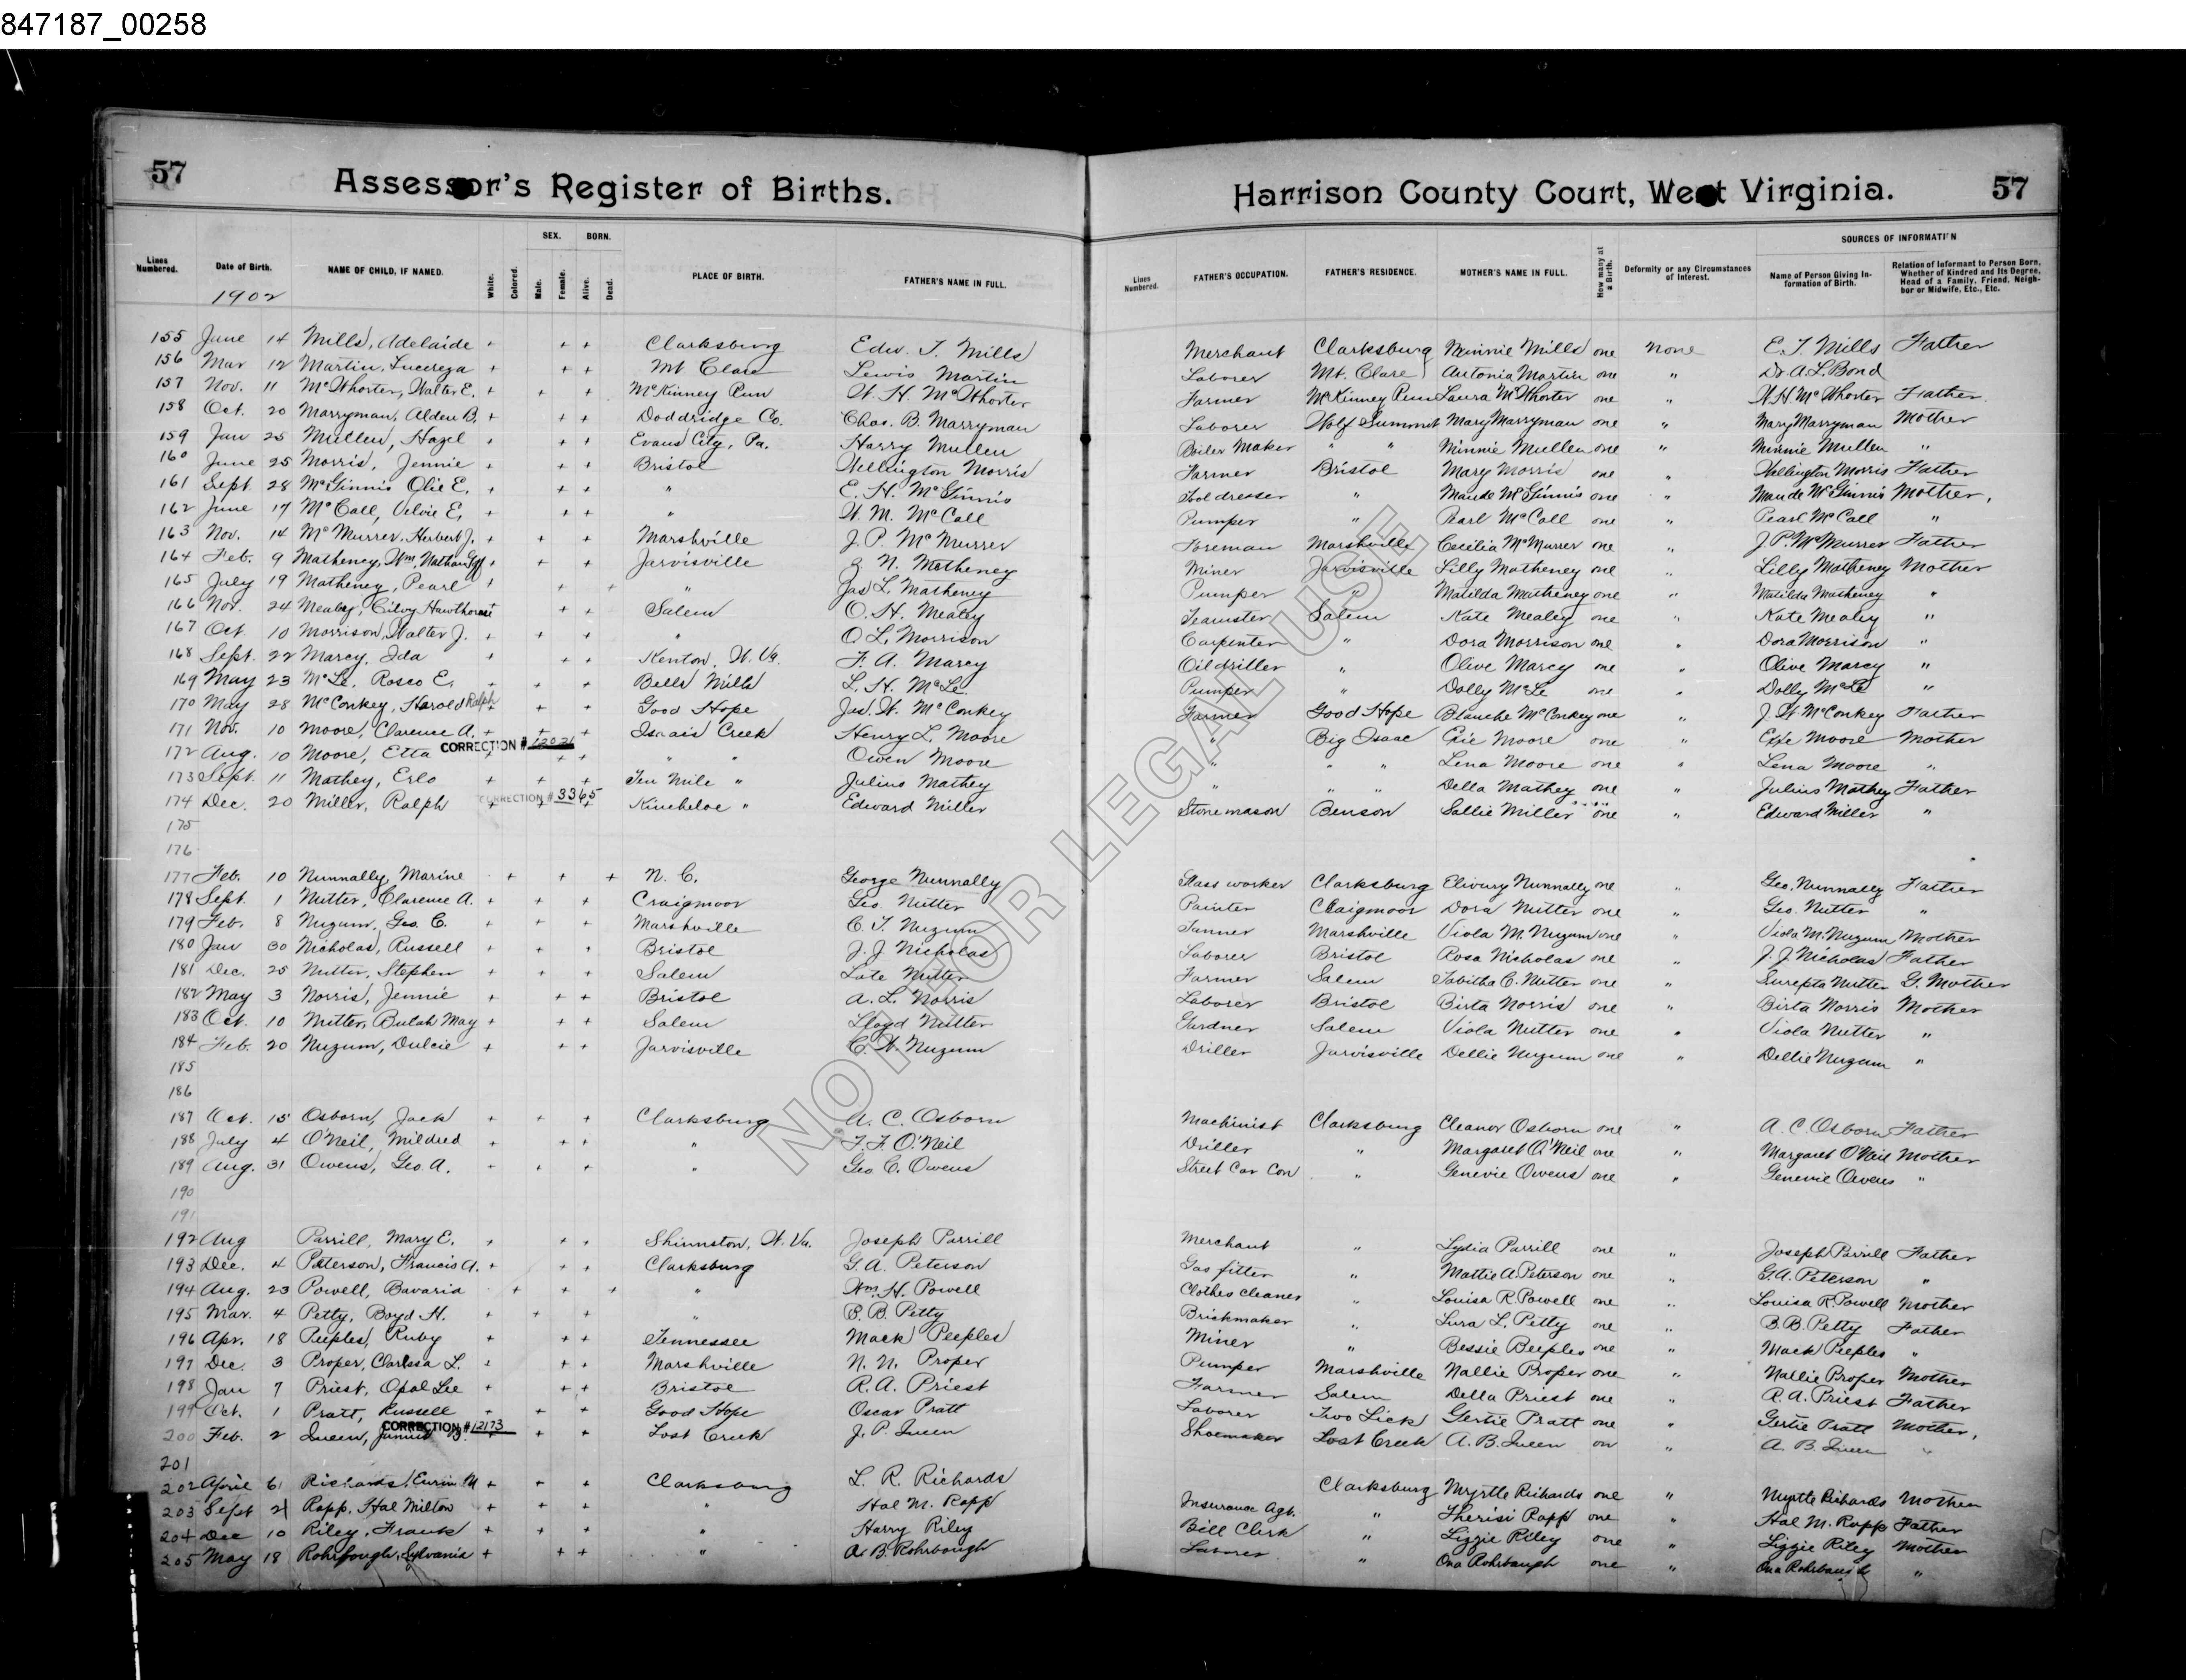 847187_00258
57 Assessor's Register of Births.
Harrison County Court, West Virginia. 57
SEX. BORN.
SOURCES OF INFORMATION
Lines Numbered. Date of Birth. NAME OF CHILD, IF NAMED. White. Colored. Male. Female. Alive. Dead. PLACE OF BIRTH. FATHER'S NAME IN FULL.
Lines Numbered. FATHER'S OCCUPATION. FATHER'S RESIDENCE. MOTHER'S NAME IN FULL. How many at a Birth. Deformity or any Circumstances of Interest. Name of Person Giving Information of Birth. Relation of Informant to Person Born, Whether of Kindred and Its Degree, Head of a Family, Friend, Neighbor or Midwife, Etc., Etc.
1902
155 June 14 Mills, Adelaide + + + Clarksburg Edw. T. Mills Merchant Clarksburg Minnie Mills one None E. T. Mills Father
156 Mar 12 Martin, + + + Mt Clare Lewis Martin Laborer Mt. Clare Antonia Martin one " Dr A L Bond
157 Nov. 11 McWhorter, Walter E. + + + McKinney Run W. H. McWhorter Farmer McKinney Run Laura McWhorter one " W. H. McWhorter Father
158 Oct. 20 Marryman, Alden B. + + + Doddridge Co. Chas. B. Marryman Laborer Wolf Summit Mary Marryman one " Mary Marryman Mother
159 Jan 25 Mullen, Hazel + + + Evans City, Pa. Harry Mullen Boiler Maker " " Minnie Mullen one " Minnie Mullen "
160 June 25 Morris, Jennie + + + Bristol Wellington Morris Farmer Bristol Mary Morris one " Wellington Morris Father
161 Sept. 28 McGinnis Olie E. + + + " E. H. McGinnis Tooldresser " Maude McGinnis one " Maude McGinnis Mother,
162 June 17 McCall, Velvie E. + + + " W. M. McCall Pumper " Pearl McCall one " Pearl McCall "
163 Nov. 14 McMurrer, Herbert J. + + + Marshville J. P. McMurrer Foreman Marshville Cecilia McMurrer one " J. P. McMurrer Father
164 Feb. 9 Matheney, Wm. Nathan + + + Jarvisville N. Matheney Miner Jarvisville Lilly Matheney one " Lilly Matheney Mother
165 July 19 Matheney, Pearl + + + " Jas L. Matheney Pumper " Matilda Matheney one " Matilda Matheney "
166 Nov. 24 Mealey, Hawthorne + + + Salem O. H. Mealey Teamster Salem Kate Mealey one " Kate Mealey "
167 Oct 10 Morrison, Walter J. + + + " O L. Morrison Carpenter " Dora Morrison one " Dora Morrison "
168 Sept. 22 Marcy, Ida + + + Kenton, W. Va. F. A. Marcy Oil driller " Olive Marcy one " Olive Marcy "
169 May 23 McLe, Rosco E. + + + Bells Mills L. H. McLe Pumper " Dolly McLe one " Dolly McLe "
170 May 28 McConkey, Harold Ralph + + + Good Hope Jas. W. McConkey Farmer Good Hope Blanche McConkey one " J. W McConkey Father
171 Nov. 10 Moore, Clarence A. + + + Isaais Creek Henry L. Moore " Big Isaac Exie Moore one " Exie Moore Mother
172 Aug. 10 Moore, Etta CORRECTION # 12021 + + + " " Owen Moore " " " Lena Moore one " Lena Moore "
173 Sept. 11 Mathey, Erlo + + + Ten Mile " Julius Mathey " " " Della Mathey one " Julius Mathey Father
174 Dec. 20 Miller, Ralph CORRECTION # 3365 + + + Kincheloe " Edward Miller Stone mason Benson Sallie Miller one " Edward Miller "
175
176
177 Feb. 10 Nunnally, Marine + + + N. C. George Nunnally Glass worker Clarksburg Nunnally one " Geo. Nunnally Father
178 Sept. 1 Nutter, Clarence A. + + + Craigmoor Geo. Nutter Painter Craigmoor Dora Nutter one " Geo. Nutter "
179 Feb. 8 Nuzum, Geo. C. + + + Marshville C. T. Nuzum Tanner Marshville Viola M. Nuzum one " Viola M. Nuzum Mother
180 Jan 30 Nicholas, Russell + + + Bristol J. J. Nicholas Laborer Bristol Rosa Nicholas one " J. J. Nicholas Father
181 Dec. 25 Nutter, Stephen + + + Salem Late Nutter Farmer Salem Tabitha C. Nutter one " Surepta Nutter G. Mother
182 May 3 Norris, Jennie + + + Bristol A. L. Norris Laborer Bristol Birta Norris one " Birta Norris Mother
183 Oct. 10 Nutter, Bulah May + + + Salem Lloyd Nutter Gardner Salem Viola Nutter one " Viola Nutter "
184 Feb. 20 Nuzum, Dulcie + + + Jarvisville C. W. Nuzum Driller Jarvisville Dellie Nuzum one " Dellie Nuzum "
185
186
187 Oct. 15 Osborn, Jack + + + Clarksburg A. C. Osborn Machinist Clarksburg Eleanor Osborn one " A. C. Osborn Father
188 July 4 O'Neil, Mildred + + + " F. F. O'Neil Driller " Margaret O'Neil one " Margaret O'Neil Mother
189 Aug. 31 Owens, Geo. A. + + + " Geo C. Owens Street Car Con " Genevie Owens one " Genevie Owens "
190
191
192 Aug Parrill, Mary E. + + + Shinnston, W. Va. Joseph Parrill Merchant " Lydia Parrill one " Joseph Parrill Father
193 Dec. 4 Peterson, Francis A. + + + Clarksburg G. A. Peterson Gas fitter " Mattie A. Peterson one " G. A. Peterson "
194 Aug. 23 Powell, Bavaria + + + " Wm. H. Powell Clothes cleaner " Louisa R. Powell one " Louisa R. Powell Mother
195 Mar. 4 Petty, Boyd H. + + + " B. B. Petty Brickmaker " Lura L. Petty one " B. B. Petty Father
196 Apr. 18 Peeples, Ruby + + + Tennessee Mack Peeples Miner " Bessie Beeples one " Mack Peeples "
197 Dec. 3 Proper, Clarissa L. + + + Marshville N. N. Proper Pumper Marshville Nallie Proper one " Nallie Proper Mother
198 Jan 7 Priest, Opal Lee + + + Bristol R. A. Priest Farmer Salem Della Priest one " R. A. Priest Father
199 Oct. 1 Pratt, Russell + + + Good Hope Oscar Pratt Laborer Two Lick Gertie Pratt one " Gertie Pratt Mother,
200 Feb. 2 Queen, Junius B. CORRECTION # 12173 + + + Lost Creek J. P. Queen Shoemaker Lost Creek A. B. Queen on " A. B. Queen "
201
202 April 6 Richards, M + + + Clarksburg L. R. Richards Clarksburg Myrtle Richards one " Myrtle Richards Mother
203 Sept 21 Rapp, Hal Milton + + + " Hal M. Rapp Insurance Agt. " Therisi Rapp one " Hal M. Rapp Father
204 Dec 10 Riley, Frank + + + " Harry Riley Bill Clerk " Lizzie Riley one " Lizzie Riley Mother
205 May 18 Rohrbough, Sylvania + + + " A. B. Rohrbough Laborer " Ona Rohrbaugh one " Ona Rohrbaugh "
NOT FOR LEGAL USE